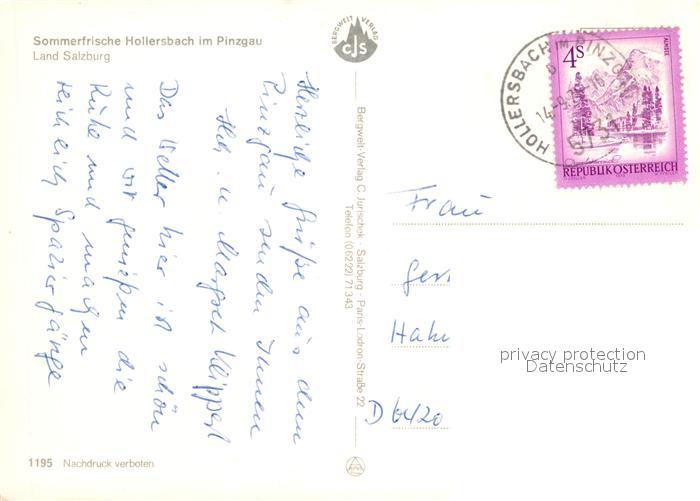 Sommerfrische Hollersbach im Pinzgau
Land Salzburg
BERGWELT VERLAG
CJS
Herzliche Grüße aus dem
Pinzgau senden Ihnen
Heb. u. Margret Klippert
Das Wetter hier ist schön
und wir genießen die
Ruhe und machen
reichlich Spaziergänge
Bergwelt-Verlag C. Jurischek · Salzburg · Paris-Lodron-Straße 22
Telefon (06222) 71343
HOLLERSBACH IM PINZGAU
5731
4S
ALMSEE
REPUBLIK ÖSTERREICH
Frau
Hahn
D 6420
privacy protection
Datenschutz
1195 Nachdruck verboten